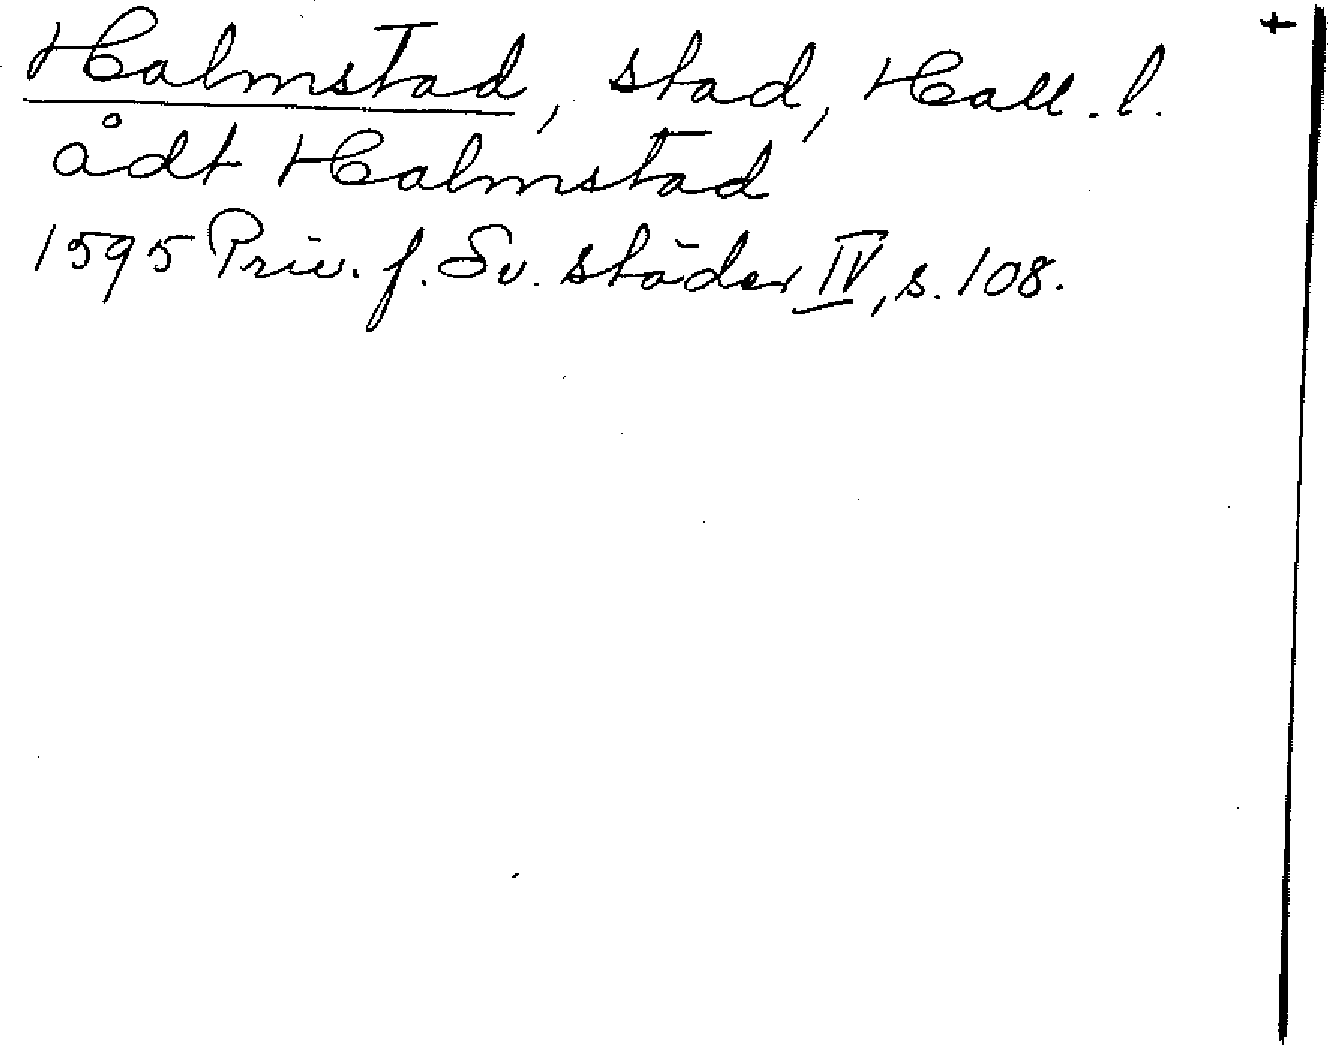 Halmstad, stad, Hall. l. +
ådt Halmstad
1595 Priv. f. Sv. städer IV, s. 108.